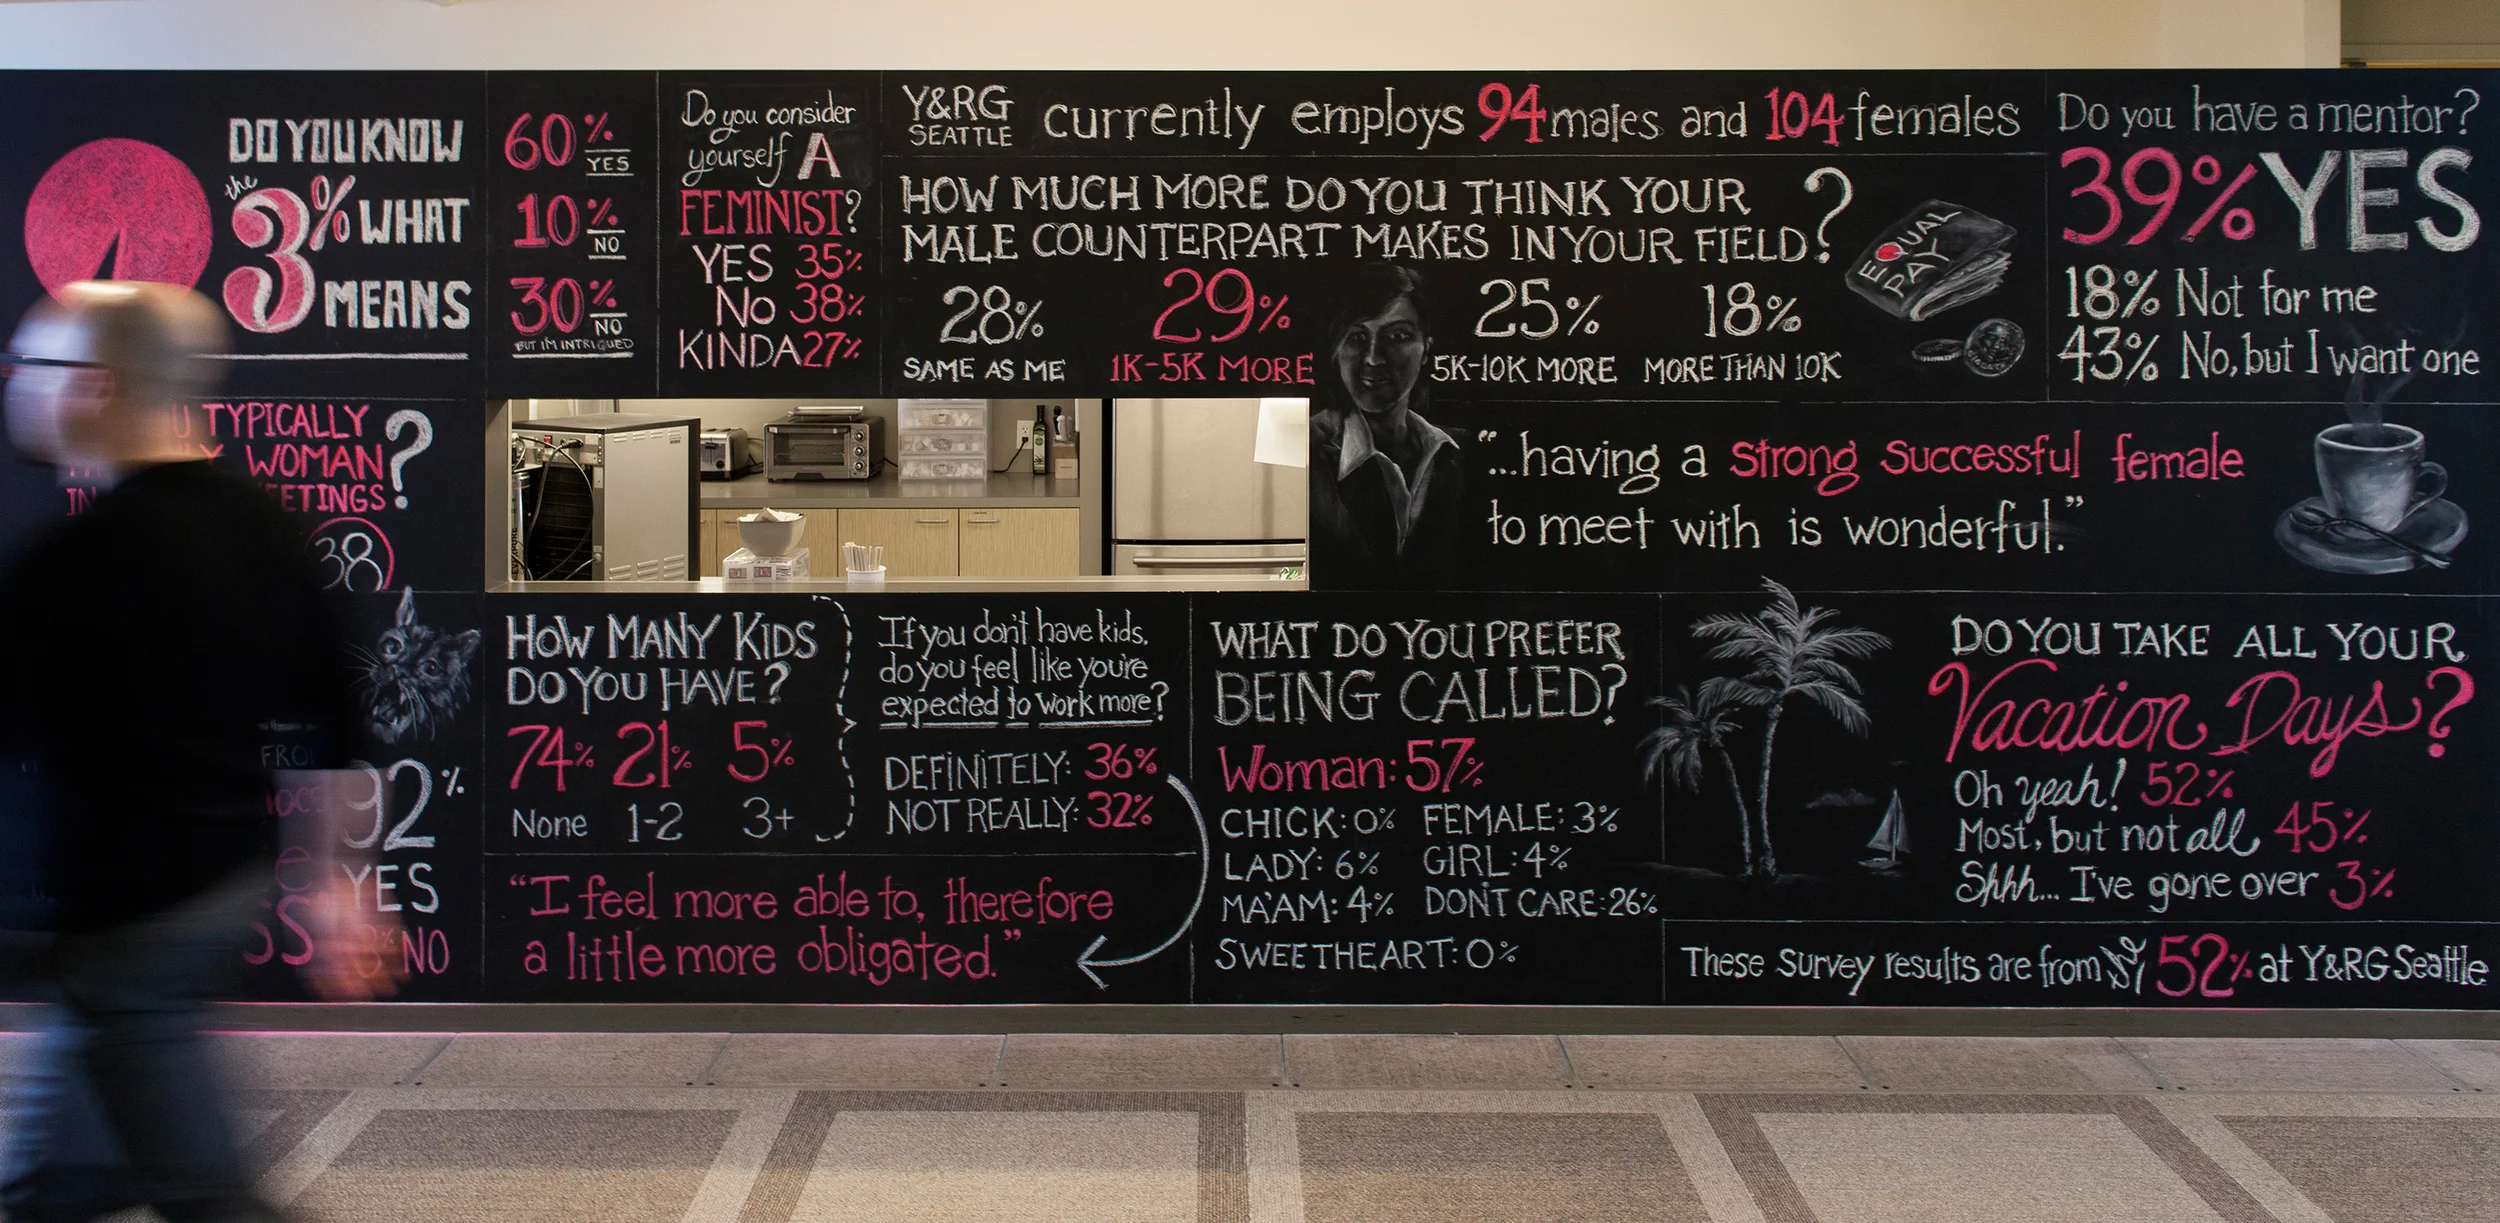 DO YOU KNOW
the 3% WHAT
MEANS
60% YES
10% NO
30% NO
BUT I'M INTRIGUED
Do you consider
yourself A
FEMINIST?
YES 35%
NO 38%
KINDA 27%
Y&RG SEATTLE currently employs 94 males and 104 females
HOW MUCH MORE DO YOU THINK YOUR
MALE COUNTERPART MAKES IN YOUR FIELD?
28% 29% 25% 18%
SAME AS ME 1K-5K MORE 5K-10K MORE MORE THAN 10K
EQUAL
PAY
Do you have a mentor?
39% YES
18% Not for me
43% No, but I want one
TYPICALLY
WOMAN
IN
?
38
"...having a strong successful female
to meet with is wonderful."
92%
YES
NO
HOW MANY KIDS
DO YOU HAVE?
74% 21% 5%
None 1-2 3+
If you don't have kids,
do you feel like you're
expected to work more?
DEFINITELY: 36%
NOT REALLY: 32%
"I feel more able to, therefore
a little more obligated."
WHAT DO YOU PREFER
BEING CALLED?
Woman: 57%
CHICK: 0% FEMALE: 3%
LADY: 6% GIRL: 4%
MA'AM: 4% DON'T CARE: 26%
SWEETHEART: 0%
DO YOU TAKE ALL YOUR
Vacation Days?
Oh yeah! 52%
Most, but not all 45%
Shhh... I've gone over 3%
These survey results are from 52% at Y&RG Seattle